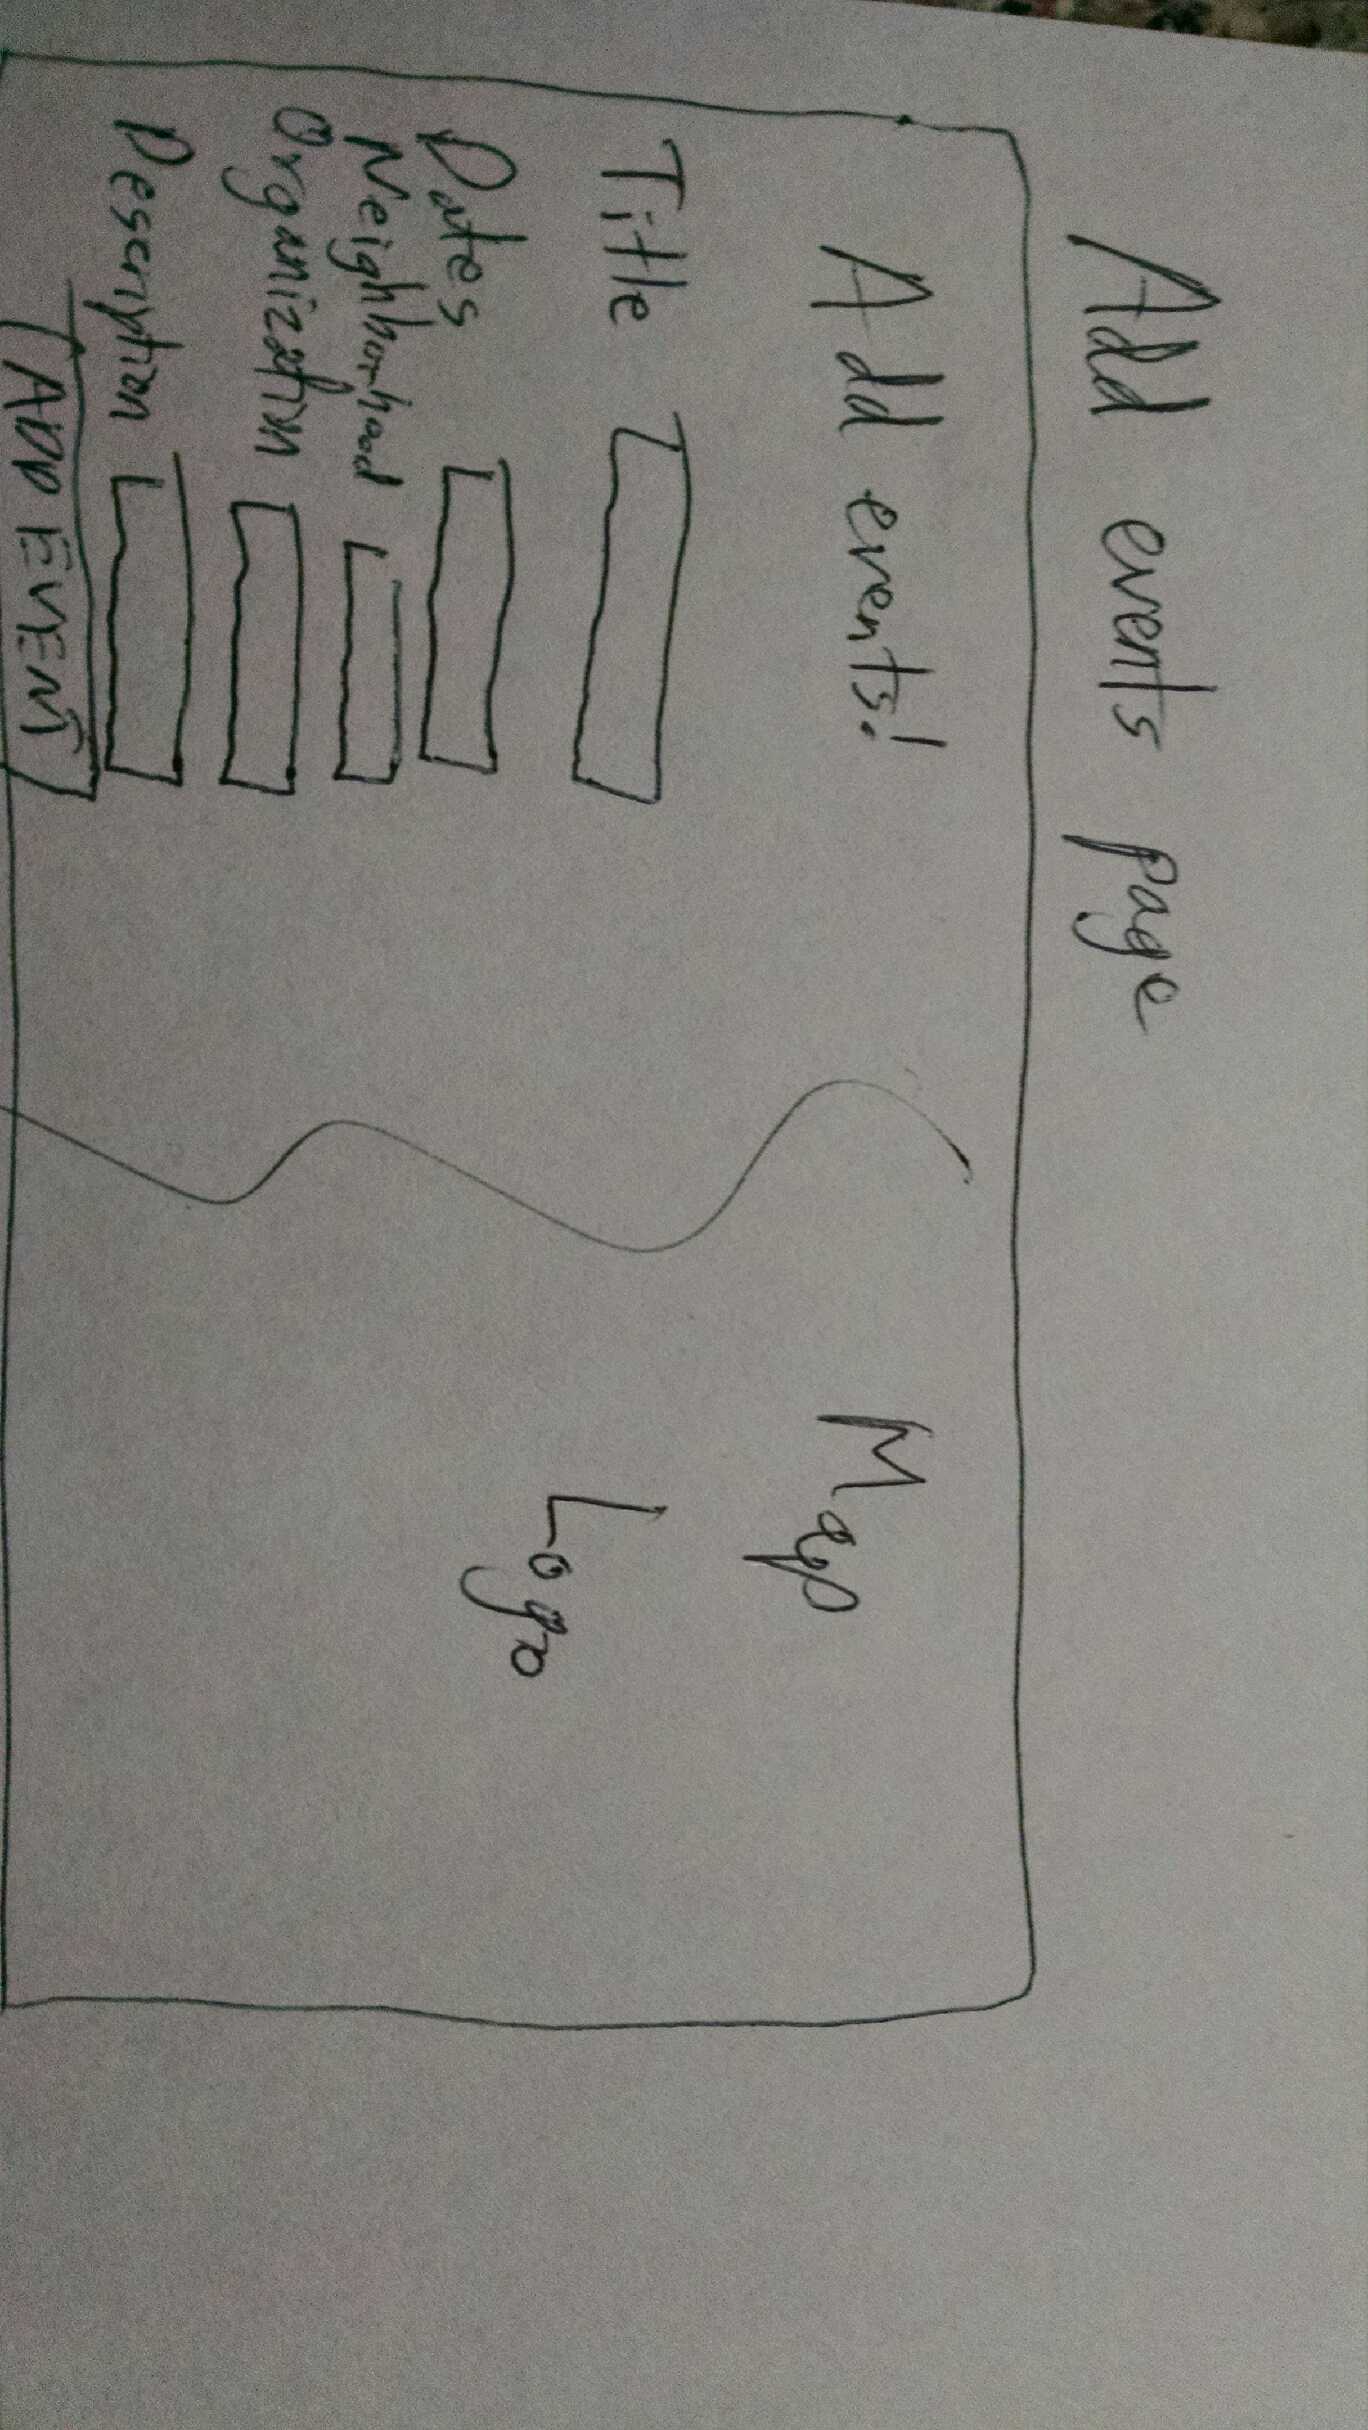 Add events page
Add events!
Title
Dates
Neighborhood
Organization
Description
ADD EVENT
Map
Logo